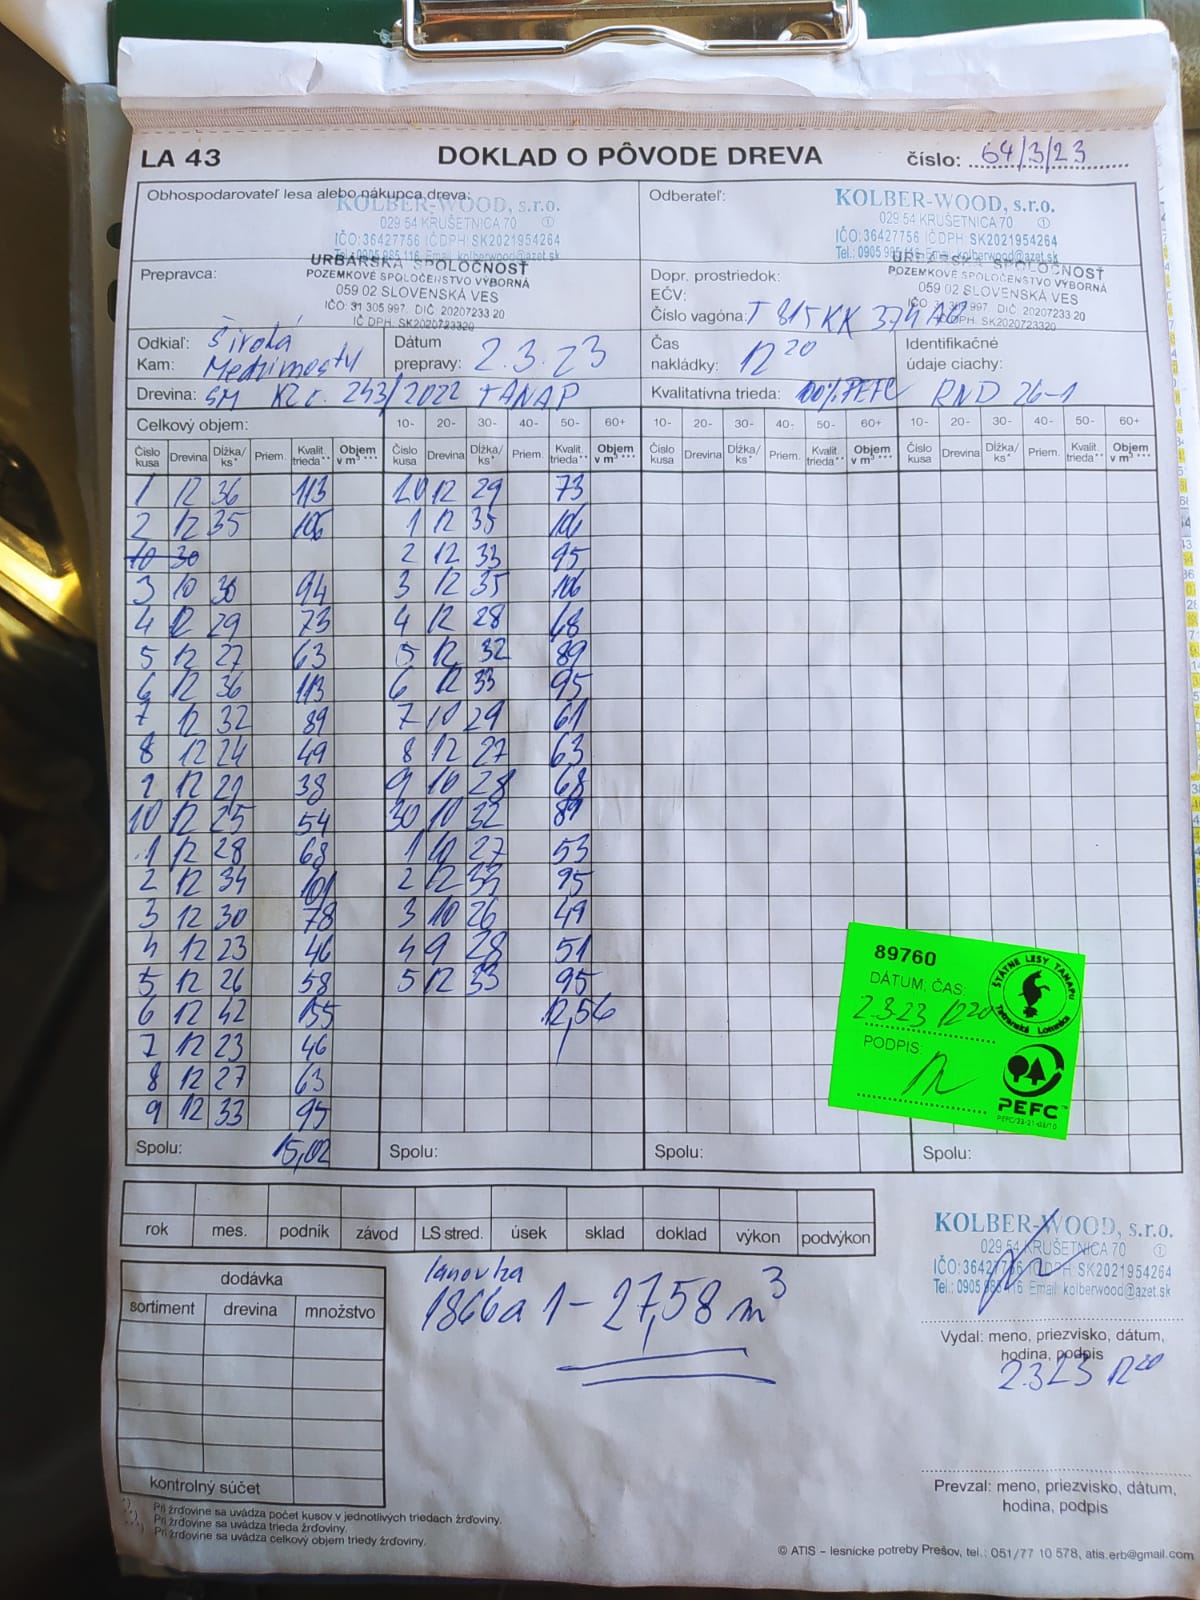 LA 43 DOKLAD O PÔVODE DREVA číslo: 64/3/23
Obhospodarovateľ lesa alebo nákupca dreva:
KOLBER-WOOD, s.r.o.
029 54 KRUŠETNICA 70 ①
IČO:36427756 IČDPH: SK2021954264
Tel.: 0905 985 116 Email: kolberwood@azet.sk
Odberateľ:
KOLBER-WOOD, s.r.o.
029 54 KRUŠETNICA 70 ①
IČO:36427756 IČDPH: SK2021954264
Tel.: 0905 985 116 Email: kolberwood@azet.sk
Prepravca:
URBÁRSKA SPOLOČNOSŤ
POZEMKOVÉ SPOLOČENSTVO VÝBORNÁ
059 02 SLOVENSKÁ VES
IČO: 31 305 997, DIČ: 20207233 20
IČ DPH: SK2020723320
Dopr. prostriedok:
EČV:
Číslo vagóna: T 815 KK 374 AB
URBÁRSKA SPOLOČNOSŤ
POZEMKOVÉ SPOLOČENSTVO VÝBORNÁ
059 02 SLOVENSKÁ VES
IČO: 31 305 997, DIČ: 20207233 20
IČ DPH: SK2020723320
Odkiaľ: Široká
Kam: Medzimosty
Dátum
prepravy: 2.3.23
Čas
nakládky: 12 20
Identifikačné
údaje ciachy:
Drevina: SM KZ č. 243/2022 TANAP
Kvalitatívna trieda: 100% PEFC RND 26-1
Celkový objem: 10- 20- 30- 40- 50- 60+ 10- 20- 30- 40- 50- 60+ 10- 20- 30- 40- 50- 60+
Číslo kusa Drevina Dĺžka/ ks* Priem. Kvalit. trieda** Objem v m³ *** Číslo kusa Drevina Dĺžka/ ks* Priem. Kvalit. trieda** Objem v m³ *** Číslo kusa Drevina Dĺžka/ ks* Priem. Kvalit. trieda** Objem v m³ *** Číslo kusa Drevina Dĺžka/ ks* Priem. Kvalit. trieda** Objem v m³ ***
1 12 36 113 20 12 29 73
2 12 35 106 1 12 35 106
10 30 2 12 33 95
3 10 36 94 3 12 35 106
4 12 29 73 4 12 28 68
5 12 27 63 5 12 32 89
6 12 36 113 6 12 33 95
7 12 32 89 7 10 29 61
8 12 24 49 8 12 27 63
9 12 38 9 10 28 68
10 12 25 54 30 10 32
1 12 28 68 1 10 27 53
2 12 34 101 2 12 33 95
3 12 30 78 3 10 26 49
4 12 23 46 4 9 28 51
5 12 26 58 5 12 33 95
6 12 42 155 12,56
7 12 23 46
8 12 27 63
9 12 33 95
Spolu: 15,02 Spolu: Spolu: Spolu:
89760
DÁTUM, ČAS:
2.3.23 12 20
PODPIS:
ŠTÁTNE LESY TANAPU
Tatranská Lomnica
PEFC
rok mes. podnik závod LS stred. úsek sklad doklad výkon podvýkon
dodávka
sortiment drevina množstvo
kontrolný súčet
lanovka
1866a 1 – 27,58 m3
KOLBER-WOOD, s.r.o.
029 54 KRUŠETNICA 70 ①
IČO:36427756 IČDPH: SK2021954264
Tel.: 0905 985 116 Email: kolberwood@azet.sk
Vydal: meno, priezvisko, dátum,
hodina, podpis
2.3.23 12 20
Prevzal: meno, priezvisko, dátum,
hodina, podpis
*) Pri žrďovine sa uvádza počet kusov v jednotlivých triedach žrďoviny.
**) Pri žrďovine sa uvádza trieda žrďoviny.
***) Pri žrďovine sa uvádza celkový objem triedy žrďoviny.
© ATIS – lesnícke potreby Prešov, tel.: 051/77 10 578, atis.erb@gmail.com